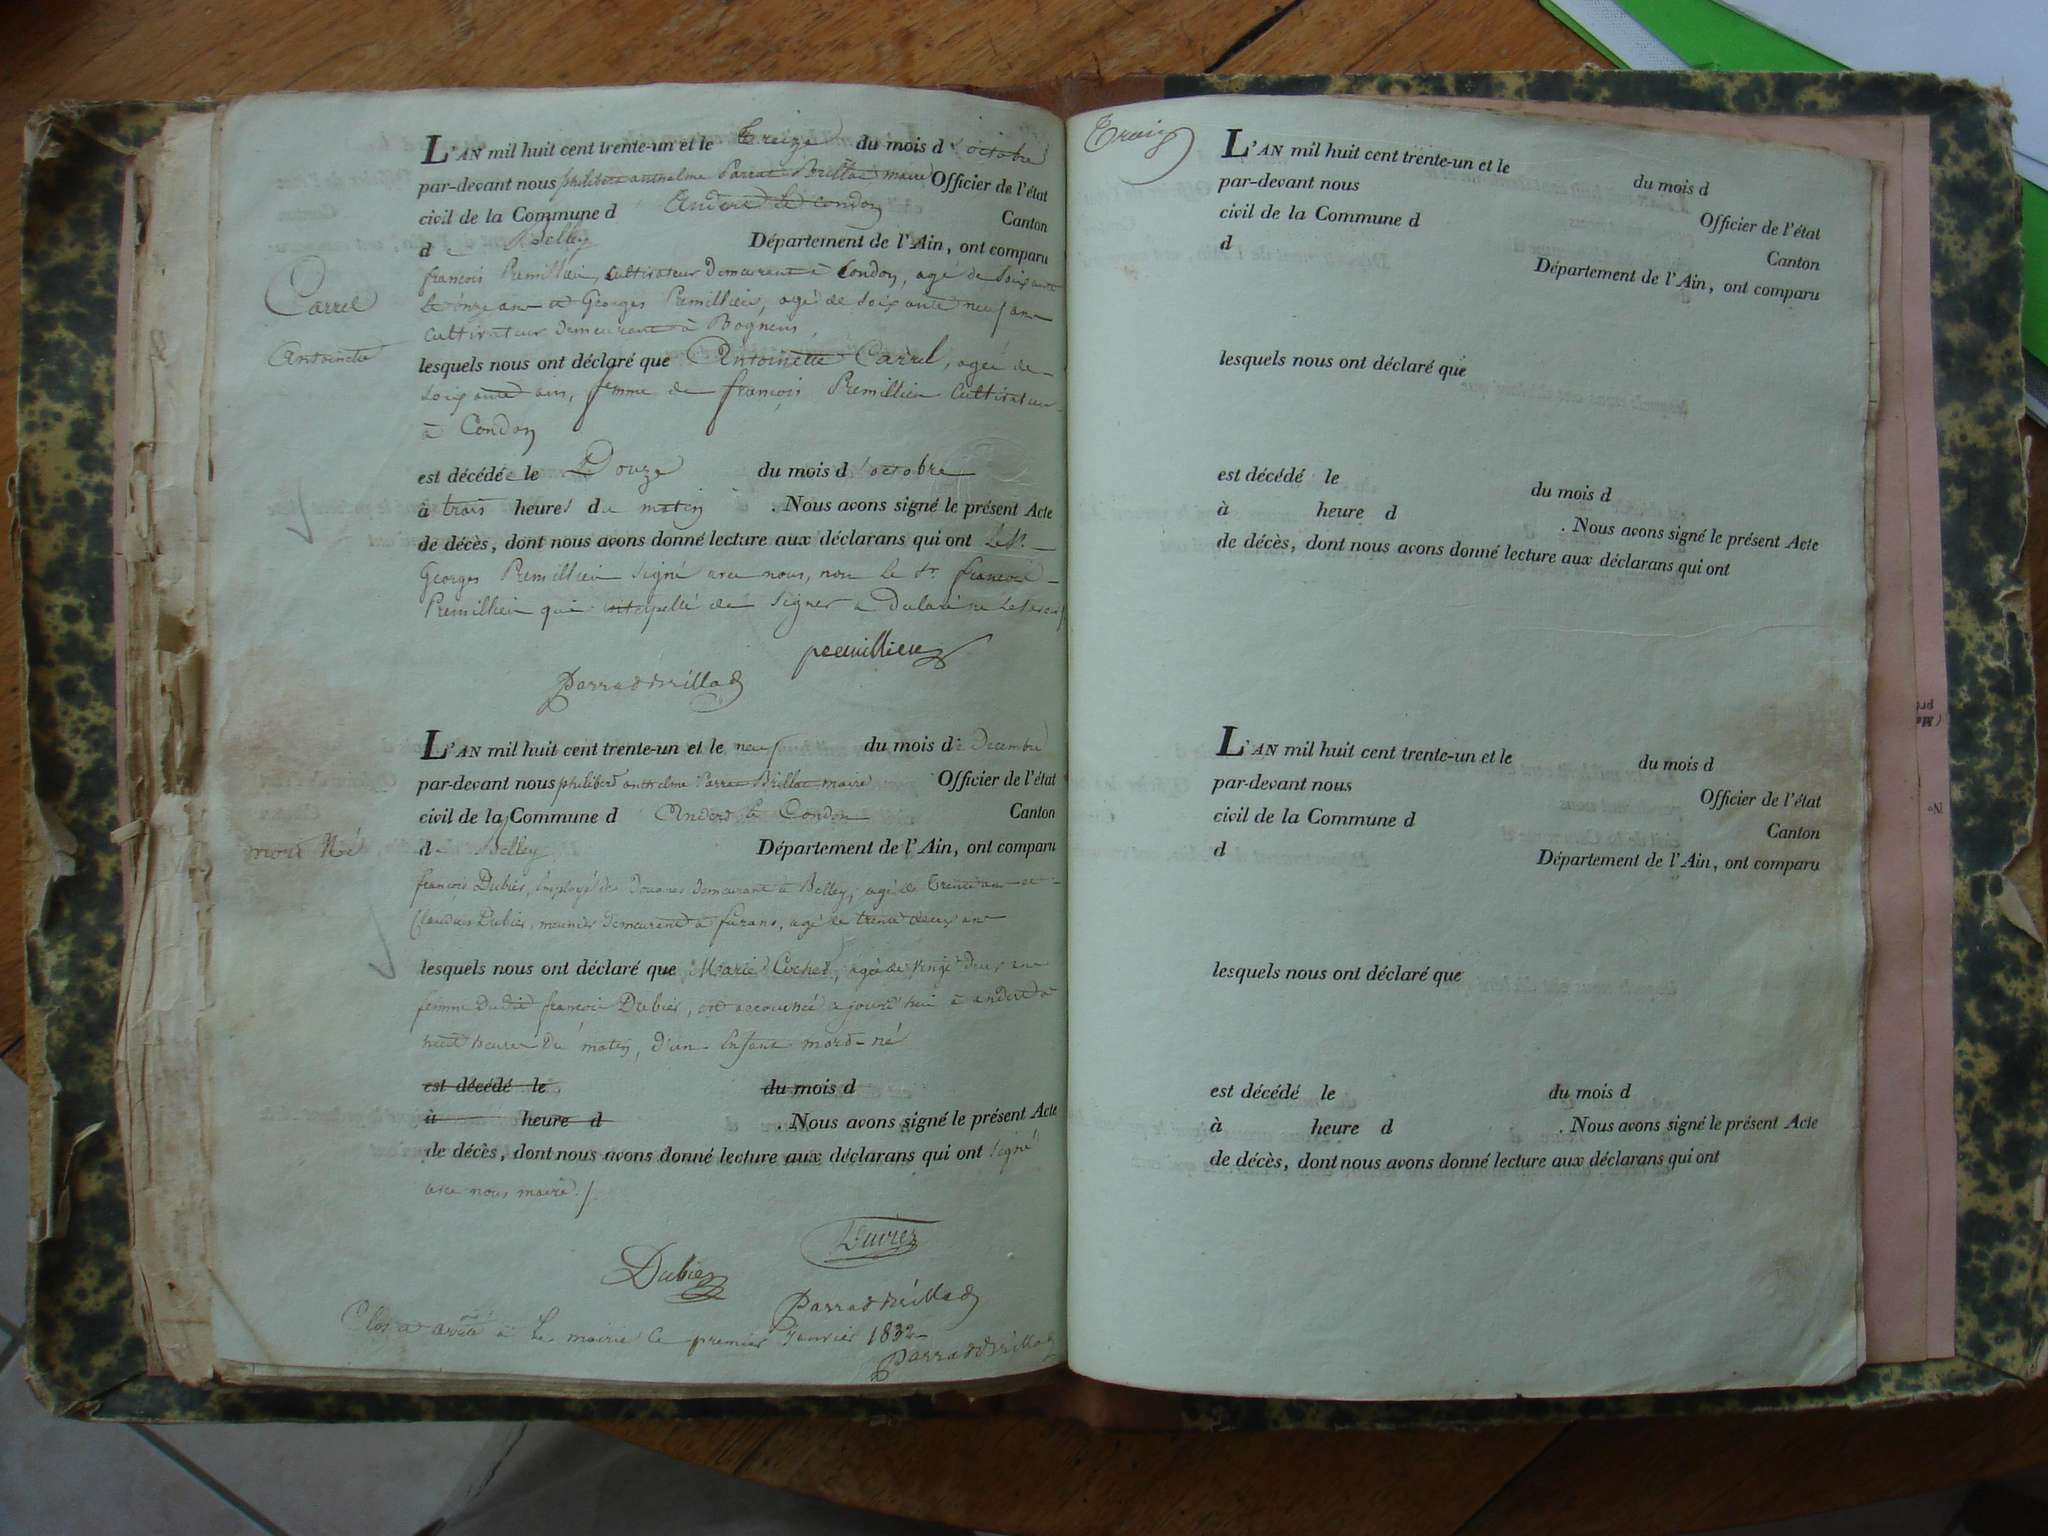 L'AN mil huit cent trente-un et le Treize du mois d'octobre
par-devant nous philibert anthelme Parrat Brillat maire Officier de l'état
civil de la Commune d Andert et Condon Canton
de Belley Département de l'Ain, ont comparu
françois Premillieu, Cultivateur Demeurant à Condon, agé de Soixante
et onze ans et Georges Premillieu, agé de Soixante neuf ans
Cultivateur Demeurant à Bognens,
Carrel
Antoinette
lesquels nous ont déclaré que Antoinette Carrel, agée de
Soixante ans, femme de françois Premillieu Cultivateur
à Condon
est décédée le Douze du mois d'octobre
à trois heures du matin . Nous avons signé le présent Acte
de décès, dont nous avons donné lecture aux déclarans qui ont le Sr.
Georges Premillieu Signé avec nous, non le Sr françois
Premillieu qui de Signer a Déclaré ne le Savoir
premillieu
Parrat Brillat
L'AN mil huit cent trente-un et le neuf du mois de Decembre
par-devant nous philibert anthelme Parrat Brillat maire Officier de l'état
civil de la Commune d Andert et Condon Canton
de Belley Département de l'Ain, ont comparu
mort Né
françois Dubiez, Employé des Douanes Demeurant à Belley, agé de Trente ans et
Claudius Dubiez, meunier Demeurant à furans, agé de trente deux ans
lesquels nous ont déclaré que Marie Cochet, agée de Vingt Deux ans
femme Dudit françois Dubiez, est accouchée aujourd'hui à andert à
huit heures Du matin, d'un Enfant mord-né
est décédé le du mois d
à heure d . Nous avons signé le présent Acte
de décès, dont nous avons donné lecture aux déclarans qui ont Signé
avec nous maire
Dubiez
Dubiez
Parrat Brillat
Clos et arrêté à La mairie Ce premier Janvier 1832
Parrat Brillat
L'AN mil huit cent trente-un et le du mois d
par-devant nous Officier de l'état
civil de la Commune d Canton
d Département de l'Ain, ont comparu
lesquels nous ont déclaré que
est décédé le du mois d
à heure d . Nous avons signé le présent Acte
de décès, dont nous avons donné lecture aux déclarans qui ont
L'AN mil huit cent trente-un et le du mois d
par-devant nous Officier de l'état
civil de la Commune d Canton
d Département de l'Ain, ont comparu
lesquels nous ont déclaré que
est décédé le du mois d
à heure d . Nous avons signé le présent Acte
de décès, dont nous avons donné lecture aux déclarans qui ont